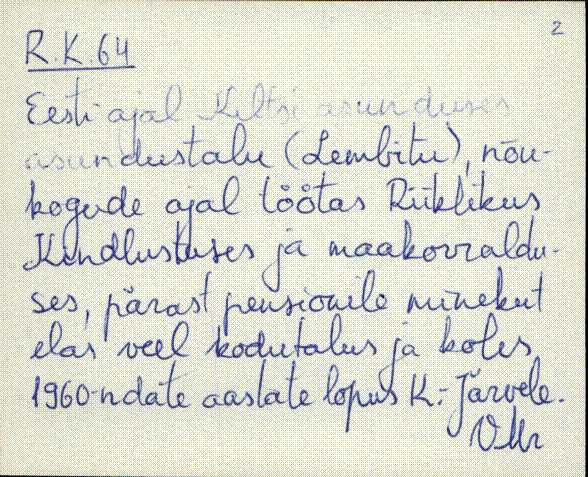 2
R.K.64
Eesti ajal Kiltsi asunduses
asundustalu (Lembitu), nõu-
kogude ajal töötas Riiklikus
Kindlustuses ja maakorraldu-
ses, pärast pensionile minekut
elas veel kodutalus ja kolis
1960-ndate aastate lõpus K.-Järvele.